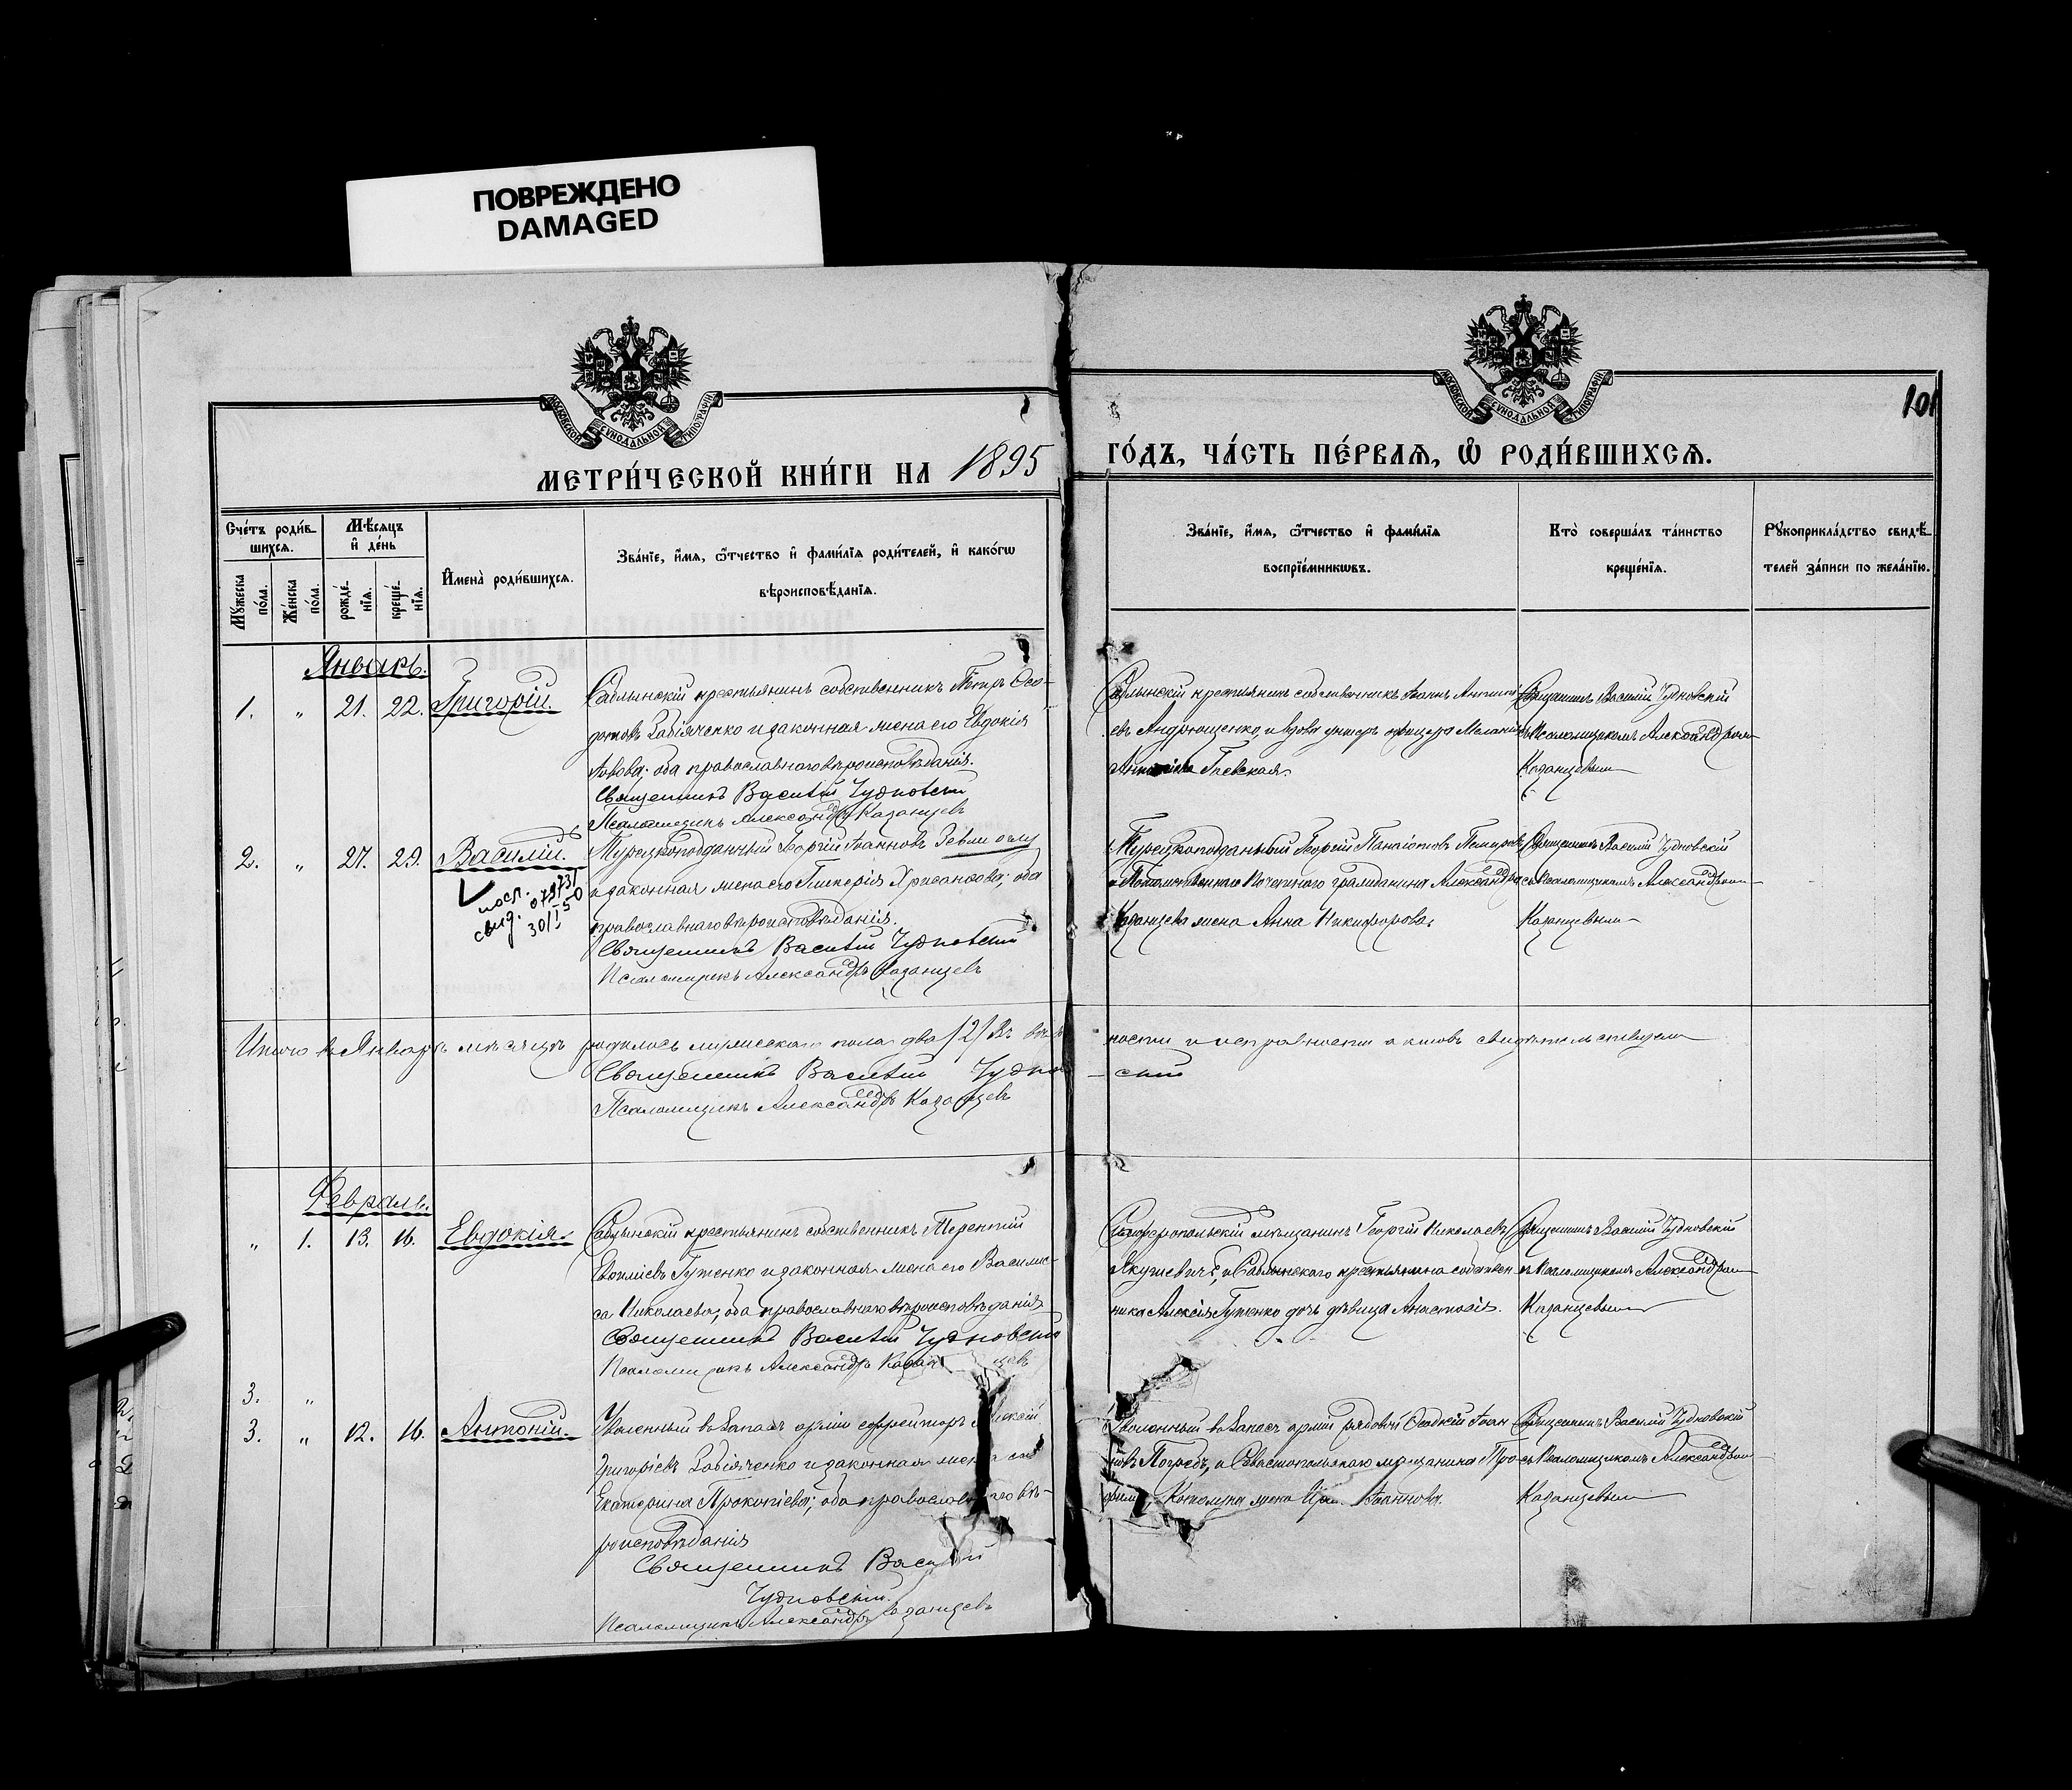 ПОВРЕЖДЕНО
DAMAGED
МОСКОВСКОЙ СУНОДАЛЬНОЙ ТИПОГРАФІИ
МОСКОВСКОЙ СУНОДАЛЬНОЙ ТИПОГРАФІИ
101
МЕТРИ́ЧЕСКОЙ КНИ́ГИ НА 1895
ГО́ДЪ, ЧА́СТЬ ПЕ́РВАѦ, Ѡ҆ РОДИ́ВШИХСѦ.
Сче́тъ роди́в-
шихсѧ.
Мꙋ́жеска
по́ла.
Же́нска
по́ла.
Мѣ́сѧцъ
и҆ де́нь
рожде́-
нїѧ.
креще́-
нїѧ.
И҆мена̀ роди́вшихсѧ.
Зва́нїе, и҆́мѧ, ѻ҆́тчество и҆ фами́лїѧ роди́телей, и҆ како́гѡ
вѣроисповѣ́данїѧ.
Зва́нїе, и҆́мѧ, ѻ҆́тчество и҆ фами́лїѧ
воспрїе́мникѡвъ.
Кто̀ соверша́лъ та́инство
креще́нїѧ.
Рꙋкоприкла́дство свидѣ́-
телей за́писи по жела́нїю.
Январь.
1. " 21. 22. Григорій.
Саблынскій крестьянинъ собственникъ Петръ Ѳео-
дотовъ Забіяченко и законная жена его Евдокія
Львова; оба православнаго вѣроисповѣданія.
Священникъ Василій Чудновскій
Псаломщикъ Александръ Казанцевъ
Саблынскій крестьянинъ собственникъ Іоаннъ
евъ Андрющенко, и вдова унтеръ офицера Меланія
Гаевская.
Священникъ Василій Чудновскій
съ Псаломщикомъ Александромъ
Казанцевымъ
2. " 27. 29. Василій.
посл.
свид. 079731
30/I 50
Турецкоподданный Георгій Іоанновъ
и законная жена его Гликерія Хрисанфова; оба
православнаго вѣроисповѣданія.
Священникъ Василій Чудновскій
Псаломщикъ Александръ Казанцевъ
Турецкоподданный Георгій Панаіотовъ
и Потомственнаго Почетнаго Гражданина Александра
Казанцева жена Анна Никифорова.
Священникъ Василій Чудновскій
съ Псаломщикомъ Александромъ
Казанцевымъ
Итого въ Январѣ мѣсяцѣ родилось мужескаго пола два /2/ Въ вѣр-
ности и исправности актовъ свидѣтельствуемъ
Священникъ Василій Чуднов-
скій
Псаломщикъ Александръ Казанцевъ
Февраль.
" 1. 13. 16. Евдокія.
Саблынскій крестьянинъ собственникъ Терентій
Евпліевъ Гутенко и законная жена его Василис-
са Николаева; оба православнаго вѣроисповѣданія
Священникъ Василій Чудновскій
Псаломщикъ Александръ Казанцевъ
Симферопольскій мѣщанинъ Георгій Николаевъ
Якушевичъ, и Саблынскаго крестьянина собствен-
ника Алексія Гутенко дочь дѣвица Анастасія.
Священникъ Василій Чудновскій
съ Псаломщикомъ Александромъ
Казанцевымъ
3. "
3. " 12. 16. Антоній.
Уволенный въ Запасъ арміи ефрейторъ Алексій
Григоріевъ Забіяченко и законная жена его
Екатерина Прокопіева; оба православнаго вѣ-
роисповѣданія
Священникъ Василій
Чудновскій.
Псаломщикъ Александръ Казанцевъ
Уволенный въ Запасъ арміи рядовой Іоан-
новъ Погребъ, и Севастопольскаго мѣщанина Тро-
фима жена Іоаннова.
Священникъ Василій Чудновскій
съ Псаломщикомъ Александромъ
Казанцевымъ